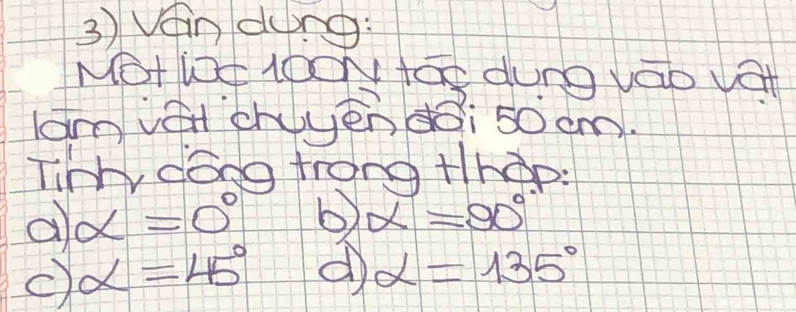 3) Vận dụng:
Một lực 100N tác dụng vào vật
làm vật chuyển dời 50 cm.
Tính công trong t/hợp:
a) α = 0° b) α = 90°
c) α = 45° d) α = 135°